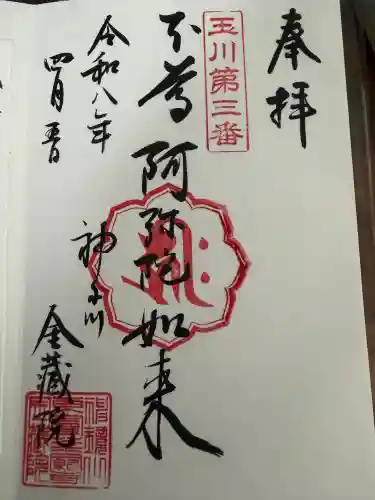 奉拝
玉川第三番
本尊 阿弥陀如来
令和八年
四月五日
神奈川
金蔵院